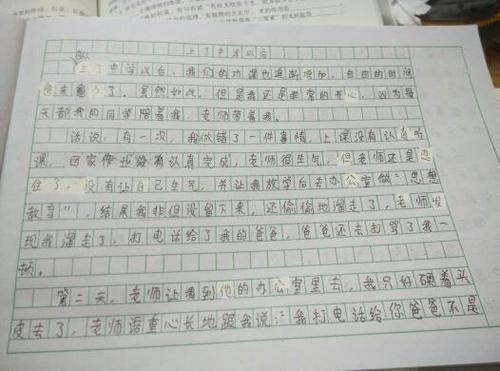 上了中学以后
上了中学以后，我们的功课也逐渐增加，自由的时间
愈来愈少了。虽然如此，但是我还是非常的开心，因为每
天都我的同学陪着我，老师带着我。
话说，有一次，我做错了一件事情，上课没有认真听
课，回家作业没有认真完成，老师很生气，但老师还是忍
住了，没有让自己生气，并让我放学后去办公室做"思想
教育"，结果我非但没留下来，还偷偷地溜走了，老师发
现我溜走了，打电话给了我的爸爸，爸爸还去打骂了我一
顿。
第二天，老师让我到他的办公室里去，我只好硬着头
皮去了，老师语重心长地跟我说："我打电话给你爸爸不是